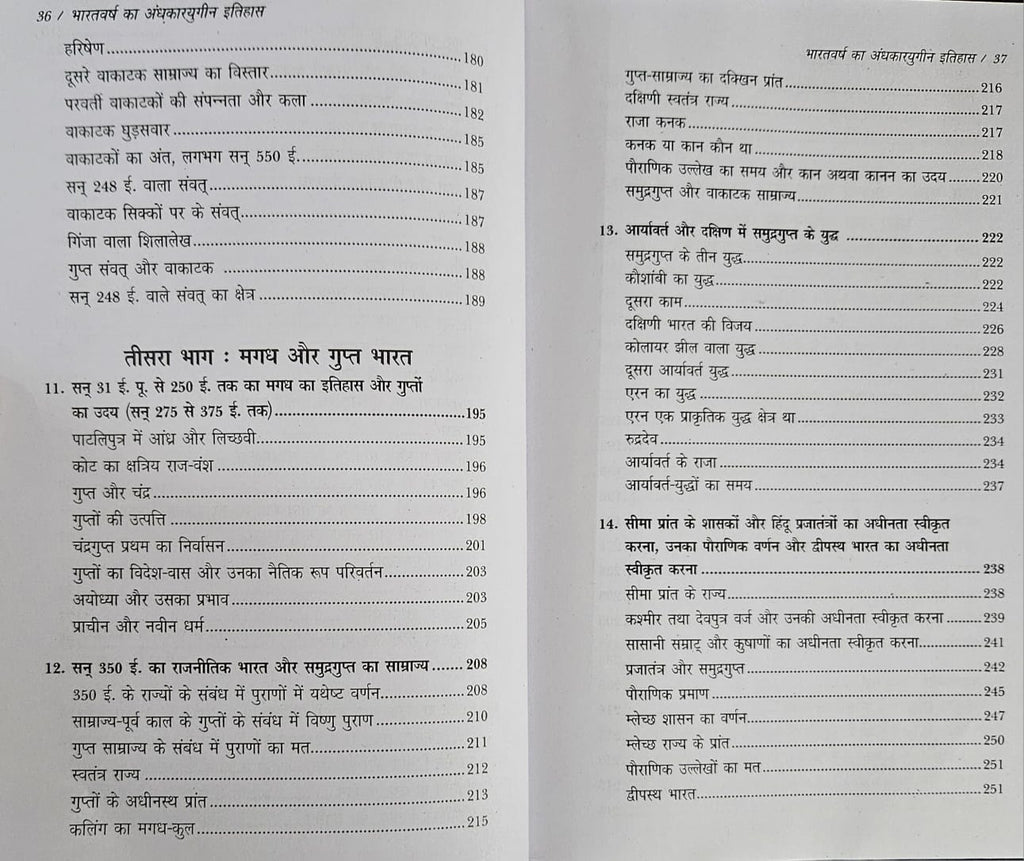 36 / भारतवर्ष का अंधकारयुगीन इतिहास
हरिषेण ........ 180
दूसरे वाकाटक साम्राज्य का विस्तार ........ 181
परवर्ती वाकाटकों की संपन्नता और कला ........ 182
वाकाटक घुड़सवार ........ 185
वाकाटकों का अंत, लगभग सन् 550 ई. ........ 185
सन् 248 ई. वाला संवत् ........ 187
वाकाटक सिक्कों पर के संवत् ........ 187
गिंजा वाला शिलालेख ........ 188
गुप्त संवत् और वाकाटक ........ 188
सन् 248 ई. वाले संवत् का क्षेत्र ........ 189
तीसरा भाग : मगध और गुप्त भारत
11. सन् 31 ई. पू. से 250 ई. तक का मगध का इतिहास और गुप्तों
का उदय (सन् 275 से 375 ई. तक) ........ 195
पाटलिपुत्र में आंध्र और लिच्छवी ........ 195
कोट का क्षत्रिय राज-वंश ........ 196
गुप्त और चंद्र ........ 196
गुप्तों की उत्पत्ति ........ 198
चंद्रगुप्त प्रथम का निर्वासन ........ 201
गुप्तों का विदेश-वास और उनका नैतिक रूप परिवर्तन ........ 203
अयोध्या और उसका प्रभाव ........ 203
प्राचीन और नवीन धर्म ........ 205
12. सन् 350 ई. का राजनीतिक भारत और समुद्रगुप्त का साम्राज्य ....... 208
350 ई. के राज्यों के संबंध में पुराणों में यथेष्ट वर्णन ........ 208
साम्राज्य-पूर्व काल के गुप्तों के संबंध में विष्णु पुराण ........ 210
गुप्त साम्राज्य के संबंध में पुराणों का मत ........ 211
स्वतंत्र राज्य ........ 212
गुप्तों के अधीनस्थ प्रांत ........ 213
कलिंग का मगध-कुल ........ 215
भारतवर्ष का अंधकारयुगीन इतिहास / 37
गुप्त-साम्राज्य का दक्खिन प्रांत ........ 216
दक्षिणी स्वतंत्र राज्य ........ 217
राजा कनक ........ 217
कनक या कान कौन था ........ 218
पौराणिक उल्लेख का समय और कान अथवा कानन का उदय ....... 220
समुद्रगुप्त और वाकाटक साम्राज्य ........ 221
13. आर्यावर्त और दक्षिण में समुद्रगुप्त के युद्ध ........ 222
समुद्रगुप्त के तीन युद्ध ........ 222
कौशांबी का युद्ध ........ 222
दूसरा काम ........ 224
दक्षिणी भारत की विजय ........ 226
कोलायर झील वाला युद्ध ........ 228
दूसरा आर्यावर्त युद्ध ........ 231
एरन का युद्ध ........ 232
एरन एक प्राकृतिक युद्ध क्षेत्र था ........ 233
रुद्रदेव ........ 234
आर्यावर्त के राजा ........ 234
आर्यावर्त-युद्धों का समय ........ 237
14. सीमा प्रांत के शासकों और हिंदू प्रजातंत्रों का अधीनता स्वीकृत
करना, उनका पौराणिक वर्णन और द्वीपस्थ भारत का अधीनता
स्वीकृत करना ........ 238
सीमा प्रांत के राज्य ........ 238
कश्मीर तथा देवपुत्र वर्ज और उनकी अधीनता स्वीकृत करना ........ 239
सासानी सम्राट् और कुषाणों का अधीनता स्वीकृत करना ........ 241
प्रजातंत्र और समुद्रगुप्त ........ 242
पौराणिक प्रमाण ........ 245
म्लेच्छ शासन का वर्णन ........ 247
म्लेच्छ राज्य के प्रांत ........ 250
पौराणिक उल्लेखों का मत ........ 251
द्वीपस्थ भारत ........ 251